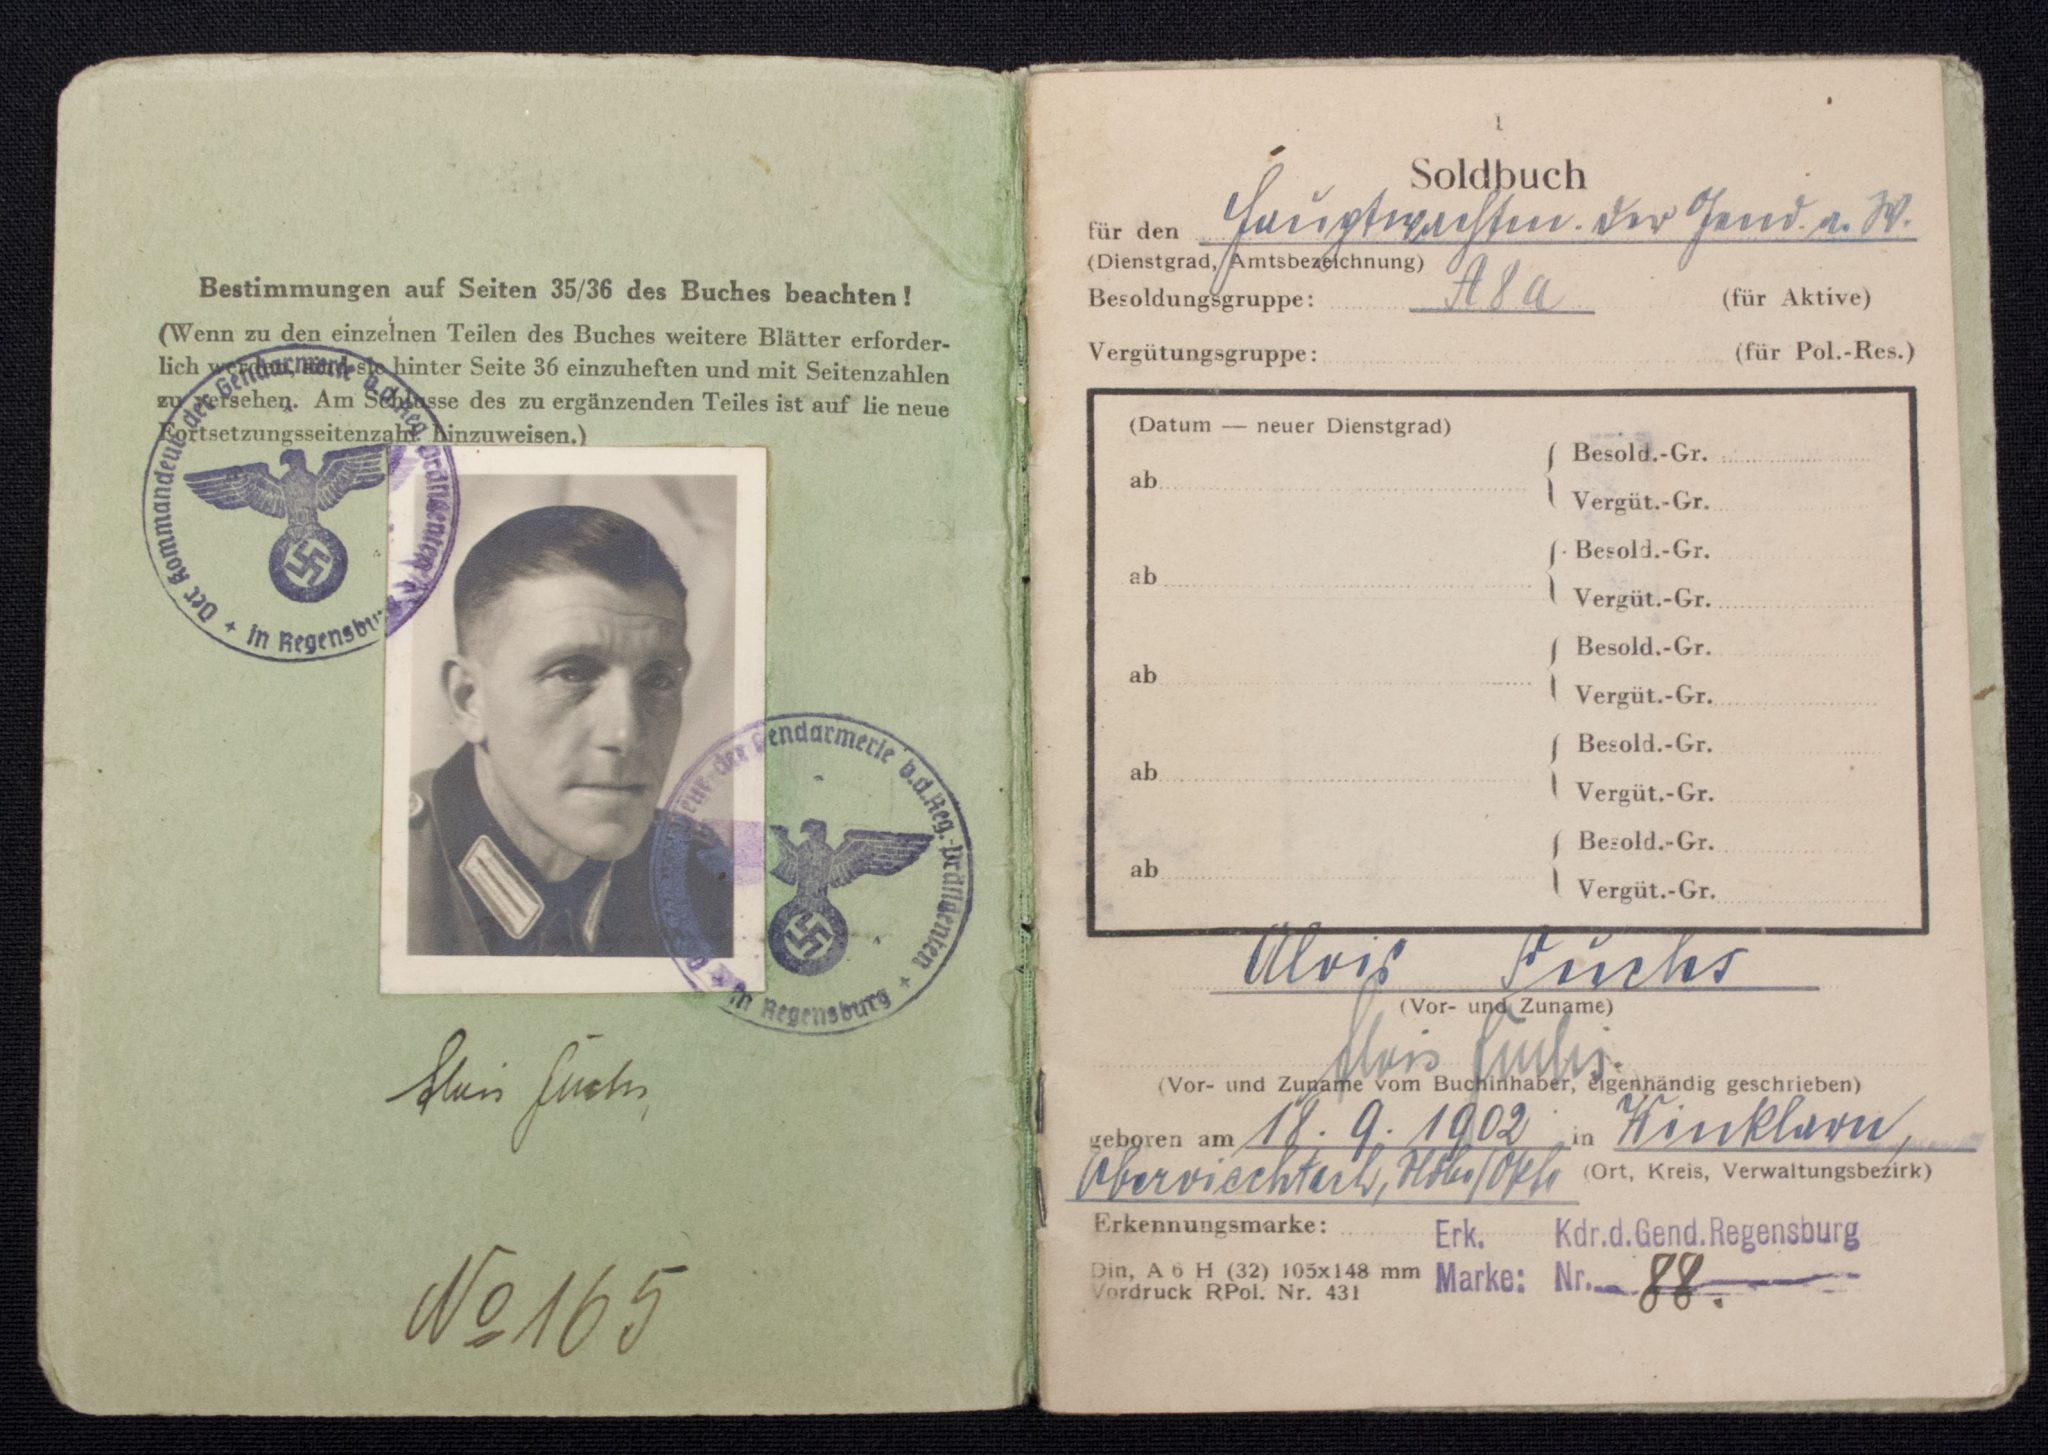 Bestimmungen auf Seiten 35/36 des Buches beachten!
(Wenn zu den einzelnen Teilen des Buches weitere Blätter erforder-
lich werden, sind sie hinter Seite 36 einzuheften und mit Seitenzahlen
zu versehen. Am Schlusse des zu ergänzenden Teiles ist auf die neue
Fortsetzungsseitenzahl hinzuweisen.)
Der Kommandeur der Gendarmerie b.d.Reg.-Präsidenten
in Regensburg
der Gendarmerie b.d.Reg.-Präsidenten
in Regensburg
Alois Fuchs
No 165
1
Soldbuch
für den Hauptwachtm. der Gend. a. W.
(Dienstgrad, Amtsbezeichnung)
Besoldungsgruppe: A8a (für Aktive)
Vergütungsgruppe: (für Pol.-Res.)
(Datum — neuer Dienstgrad)
ab Besold.-Gr.
Vergüt.-Gr.
ab Besold.-Gr.
Vergüt.-Gr.
ab Besold.-Gr.
Vergüt.-Gr.
ab Besold.-Gr.
Vergüt.-Gr.
ab Besold.-Gr.
Vergüt.-Gr.
Alois Fuchs
(Vor- und Zuname)
Alois Fuchs.
(Vor- und Zuname vom Buchinhaber, eigenhändig geschrieben)
geboren am 18. 9. 1902 in Winklarn,
Oberviechtach, (Ort, Kreis, Verwaltungsbezirk)
Erkennungsmarke: Erk. Kdr.d.Gend.Regensburg
Din, A 6 H (32) 105x148 mm Marke: Nr. 88.
Vordruck RPol. Nr. 431